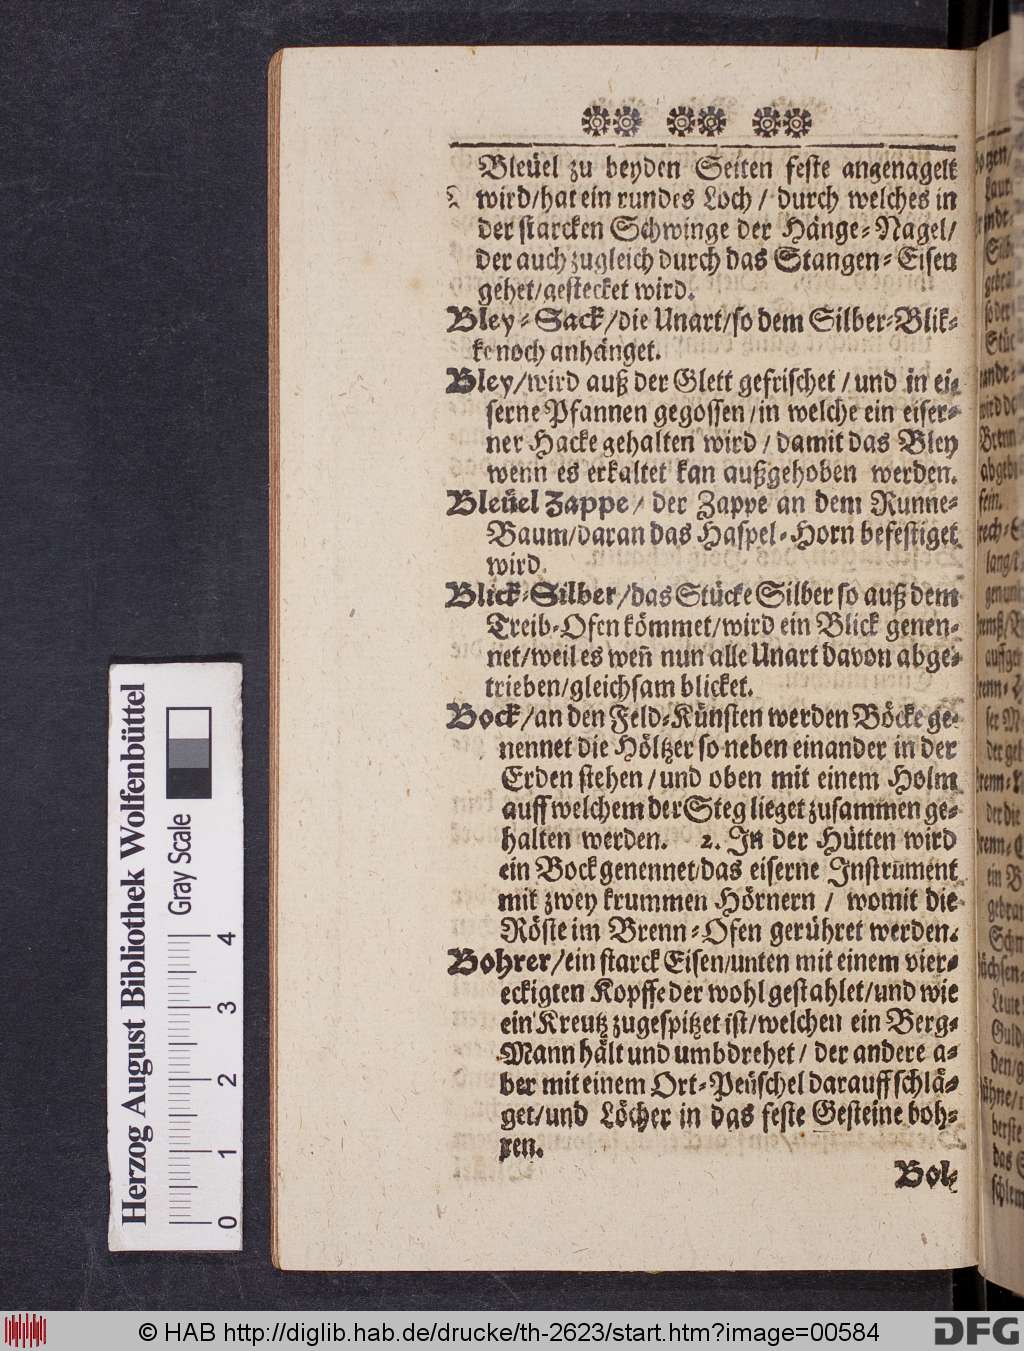 Bleüel zu beyden Seiten feste angenagelt
wird/hat ein rundes Loch / durch welches in
der starcken Schwinge der Hänge-Nagel/
der auch zugleich durch das Stangen-Eisen
gehet/gestecket wird.
Bley-Sack/die Unart/so dem Silber-Blik-
ke noch anhänget.
Bley/wird auß der Glett gefrischet / und in ei-
serne Pfannen gegossen/in welche ein eiser-
ner Hacke gehalten wird / damit das Bley
wenn es erkaltet kan außgehoben werden.
Bleüel Zappe/ der Zappe an dem Runne-
Baum/daran das Haspel-Horn befestiget
wird.
Blick-Silber/das Stücke Silber so auß dem
Treib-Ofen kömmet/wird ein Blick genen-
net/weil es weñ nun alle Unart davon abge-
trieben/gleichsam blicket.
Bock/an den Feld-Künsten werden Böcke ge-
nennet die Höltzer so neben einander in der
Erden stehen/und oben mit einem Holm
auff welchem der Steg lieget zusammen ge-
halten werden. 2. In der Hütten wird
ein Bock genennet/das eiserne Instrument
mit zwey krummen Hörnern / womit die
Röste im Brenn-Ofen gerühret werden.
Bohrer/ein starck Eisen/unten mit einem vier-
eckigten Kopffe der wohl gestahlet/und wie
ein Kreutz zugespitzet ist/welchen ein Berg-
Mann hält und umbdrehet/ der andere a-
ber mit einem Ort-Peüschel darauff schlä-
get/und Löcher in das feste Gesteine boh-
ren.
Bol-
Herzog August Bibliothek Wolfenbüttel
Gray Scale
0 1 2 3 4
© HAB http://diglib.hab.de/drucke/th-2623/start.htm?image=00584
DFG